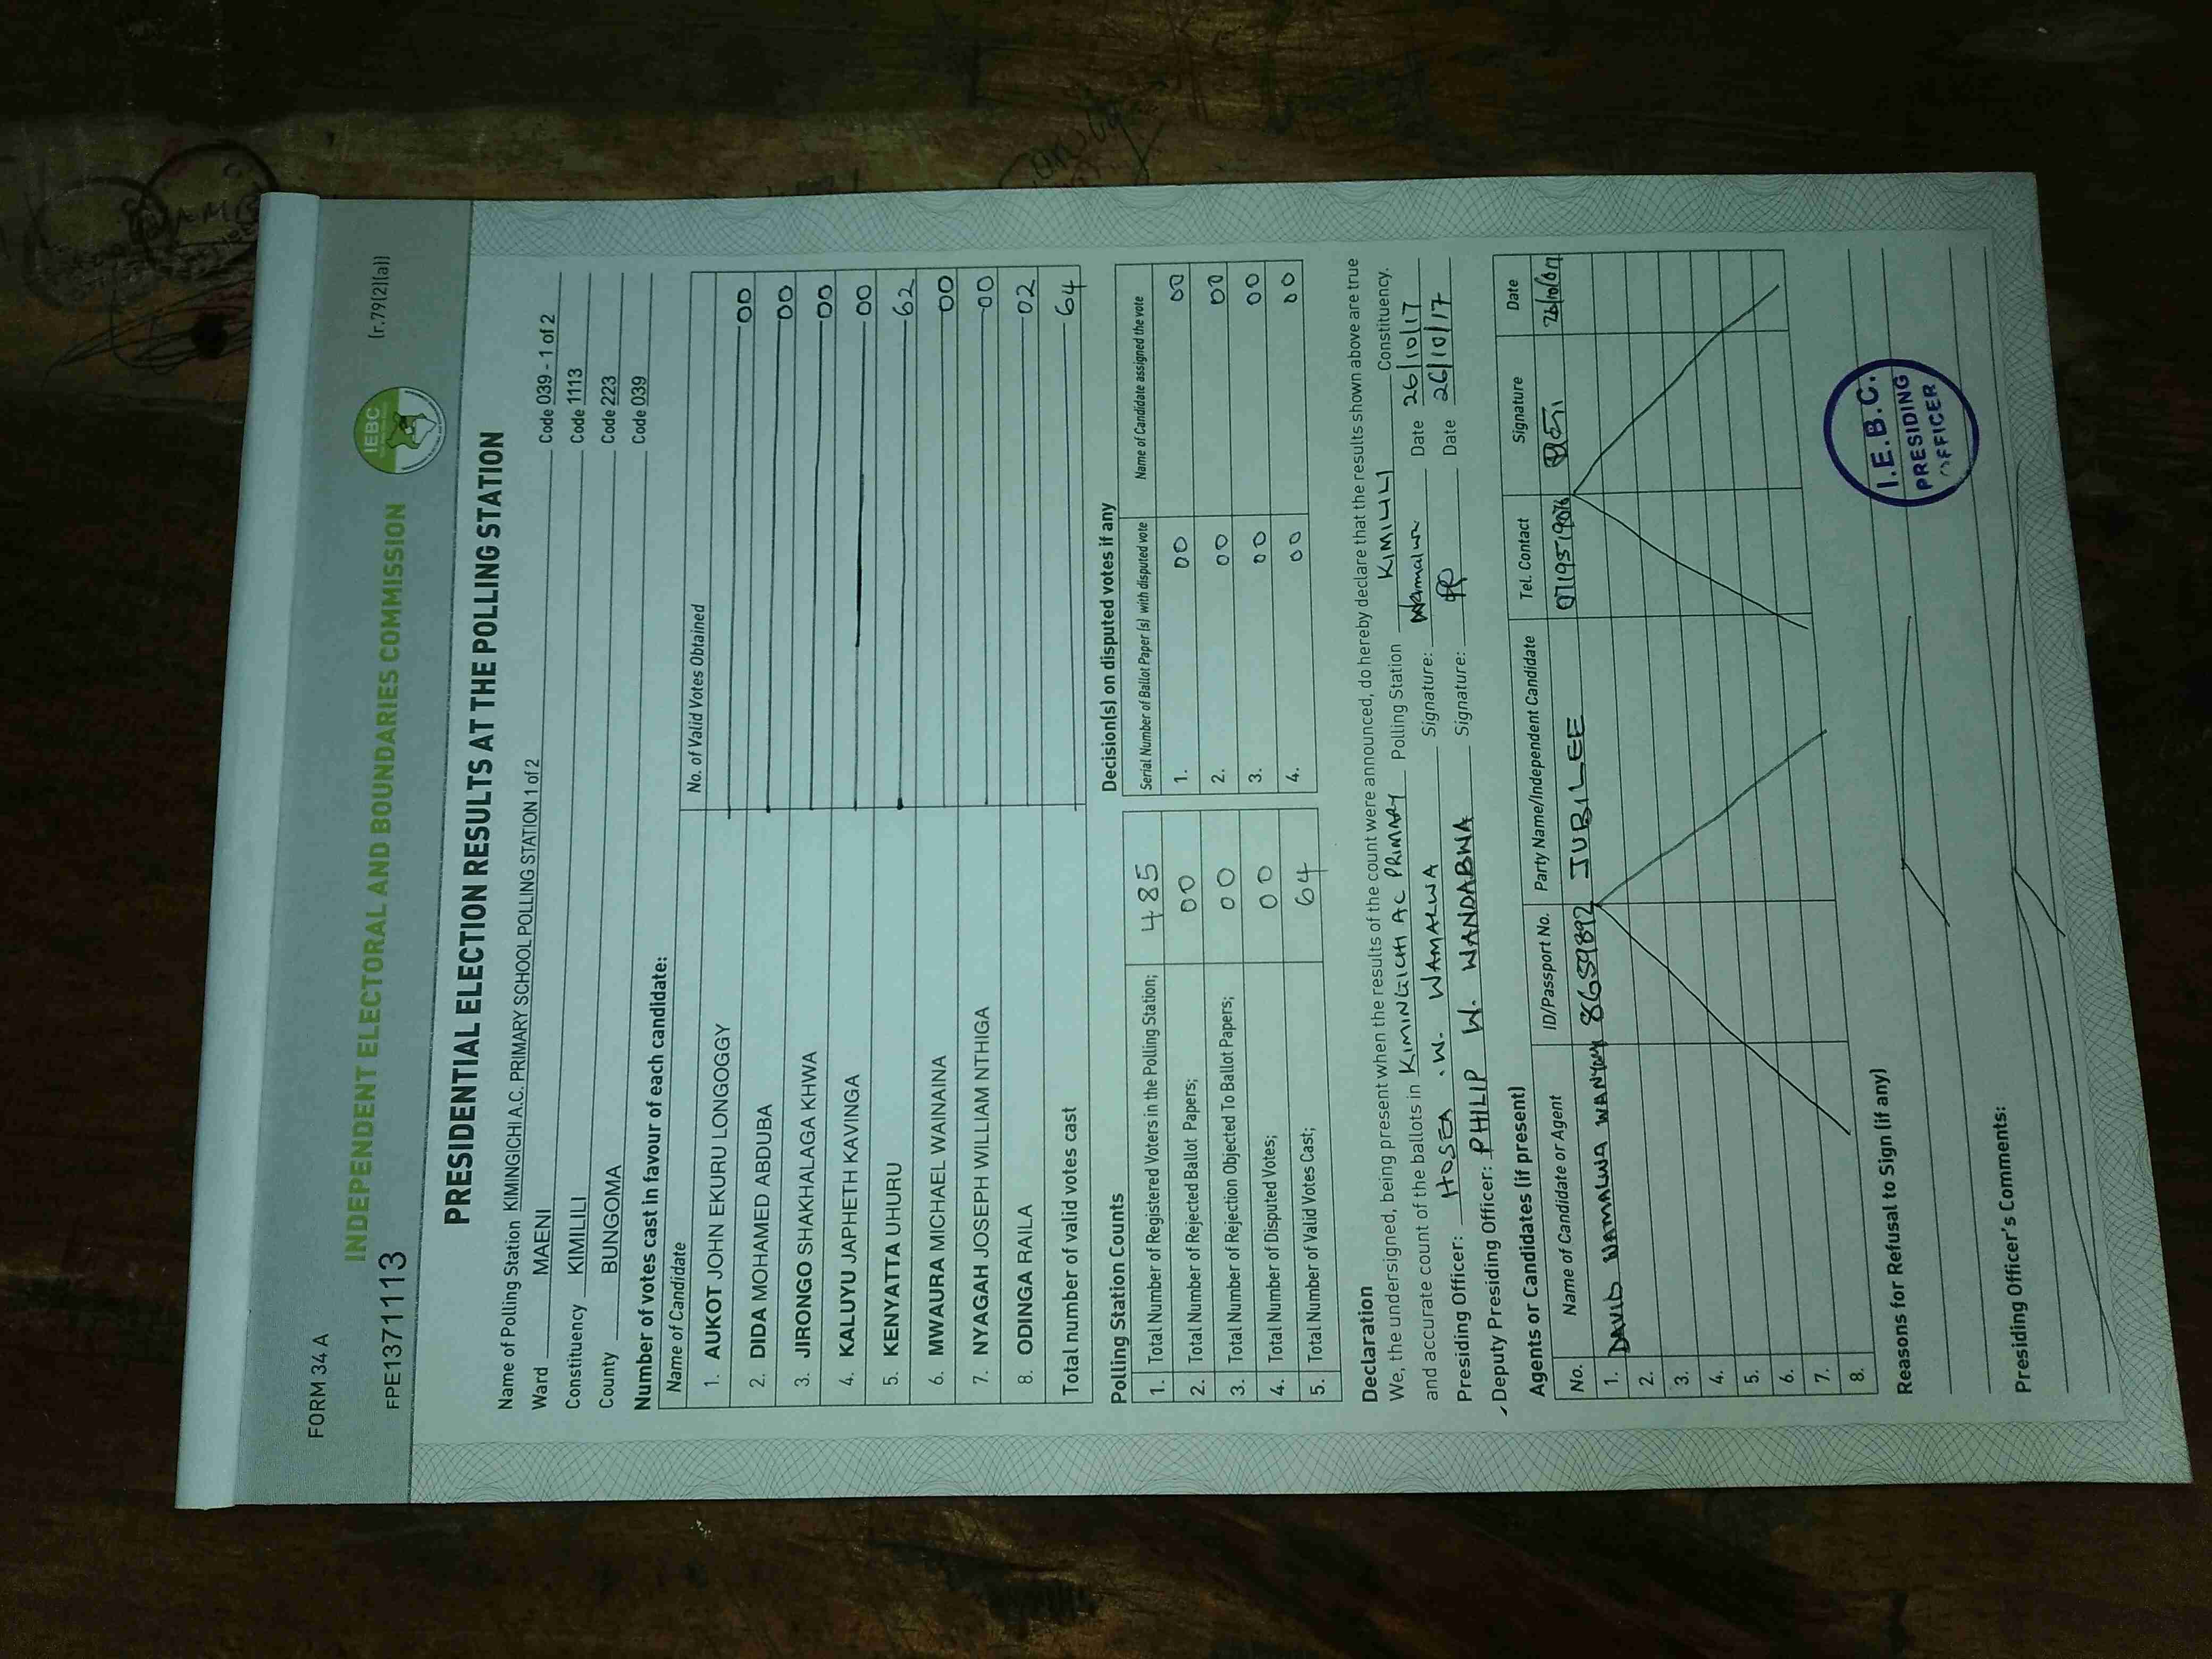 FORM 34 A
(r.79(2)(a))
IEBC
INDEPENDENT ELECTORAL AND BOUNDARIES COMMISSION
FPE1371113
PRESIDENTIAL ELECTION RESULTS AT THE POLLING STATION
Name of Polling Station KIMINGICHI A.C. PRIMARY SCHOOL POLLING STATION 1 of 2 Code 039 - 1 of 2
Ward MAENI Code 1113
Constituency KIMILILI Code 223
County BUNGOMA Code 039
Number of votes cast in favour of each candidate:
Name of Candidate No. of Valid Votes Obtained
1. AUKOT JOHN EKURU LONGOGGY 00
2. DIDA MOHAMED ABDUBA 00
3. JIRONGO SHAKHALAGA KHWA 00
4. KALUYU JAPHETH KAVINGA 00
5. KENYATTA UHURU 62
6. MWAURA MICHAEL WAINAINA 00
7. NYAGAH JOSEPH WILLIAM NTHIGA 00
8. ODINGA RAILA 02
Total number of valid votes cast 64
Polling Station Counts
1. Total Number of Registered Voters in the Polling Station; 485
2. Total Number of Rejected Ballot Papers; 00
3. Total Number of Rejection Objected To Ballot Papers; 00
4. Total Number of Disputed Votes; 00
5. Total Number of Valid Votes Cast; 64
Decision(s) on disputed votes if any
Serial Number of Ballot Paper (s) with disputed vote Name of Candidate assigned the vote
1. 00 00
2. 00 00
3. 00 00
4. 00 00
Declaration
We, the undersigned, being present when the results of the count were announced, do hereby declare that the results shown above are true
and accurate count of the ballots in KIMINGICHI AC PRIMARY Polling Station KIMILILI Constituency.
Presiding Officer: HOSEA .W. WAMALWA Signature: Wamalwa Date 26/10/17
Deputy Presiding Officer: PHILIP W. WANDABWA Signature: Date 26/10/17
Agents or Candidates (if present)
No. Name of Candidate or Agent ID/Passport No. Party Name/Independent Candidate Tel. Contact Signature Date
1. DAVID WAMALWA 8659892 JUBILEE
2.
3.
4.
5.
6.
7.
8.
Reasons for Refusal to Sign (if any)
I.E.B.C.
PRESIDING
OFFICER
Presiding Officer's Comments: